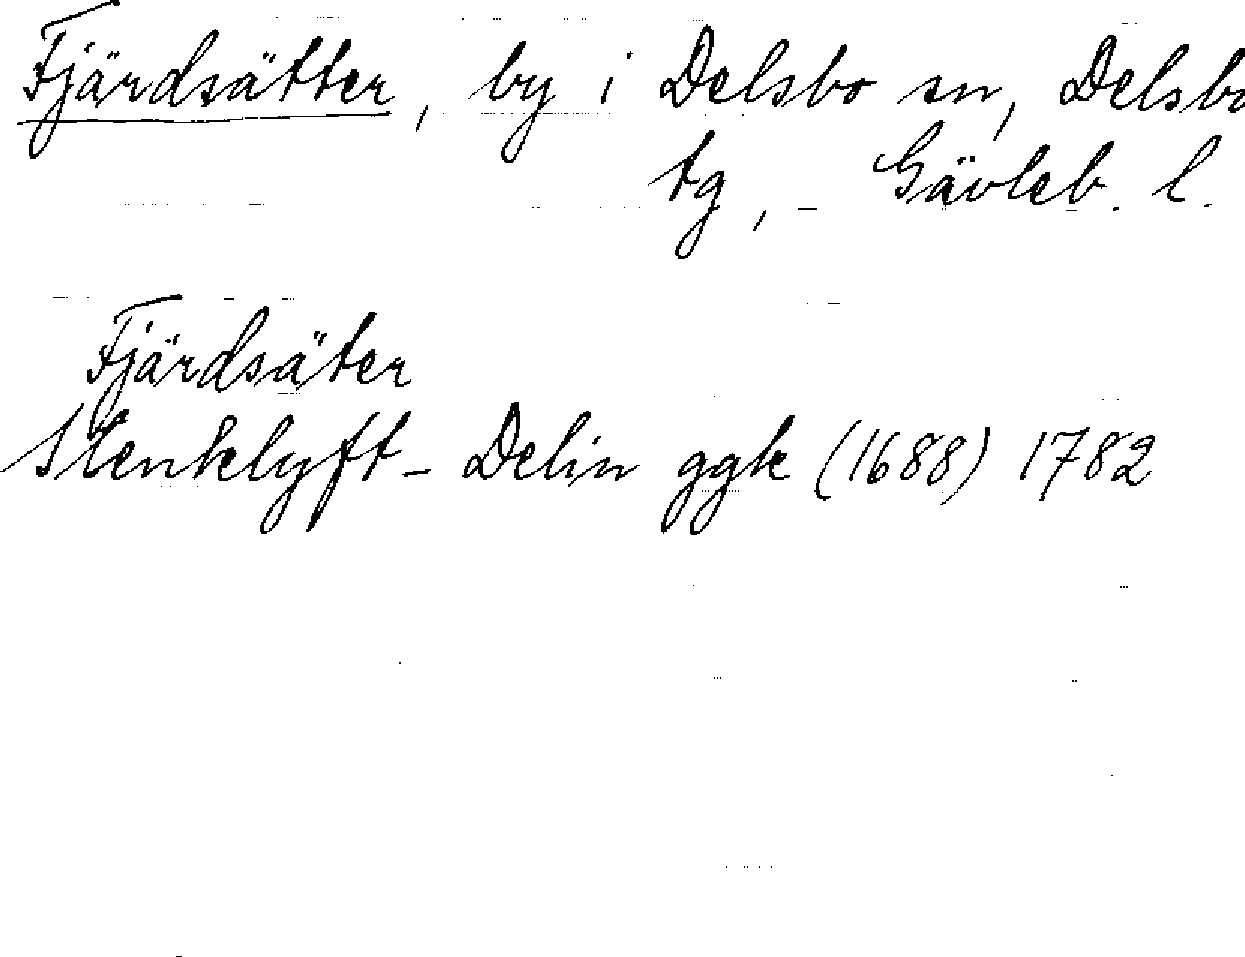 Fjärdsätter, by i Delsbo sn, Delsbo
tg, Gävleb. l.
Fjärdsäter
Stenklyft - Delin ggk (1688) 1782